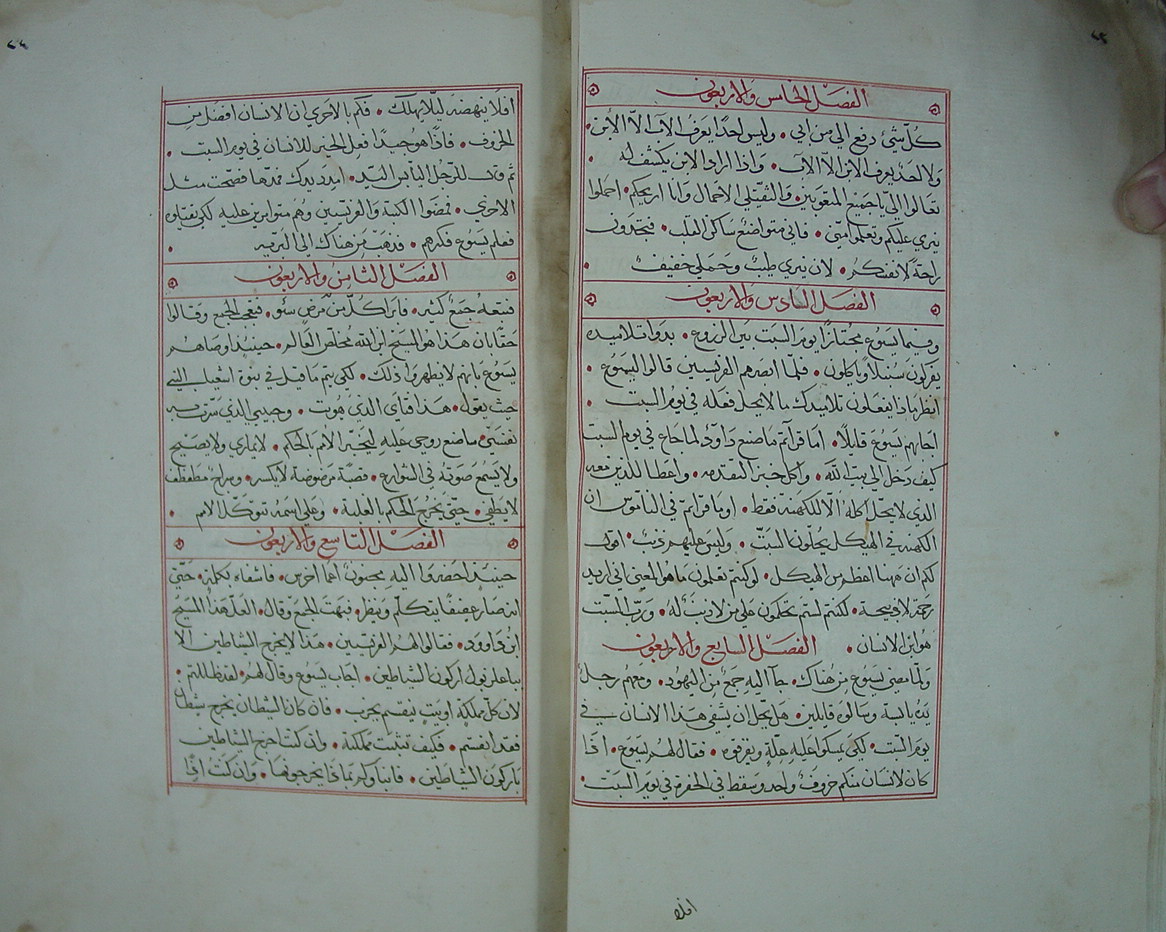 الفصل الخامس والاربعون
كل شي دفع الي من ابي • وليس احدا يعرف الاب الا الابن •
ولا احد يعرف الابن الا الاب • واذا اراد الابن يكشف له •
تعالوا الي يا جميع المتعوبين والثقيلي الاحمال وانا اريحكم • احملوا
نيري عليكم وتعلموا مني • فاني متواضع ساكن القلب • فتجدون
راحة لانفسكم • لان نيري طيب وحملي خفيف •
الفصل السادس والاربعون
وفيما يسوع مجتازا يوم السبت بين الزروع • بدوا تلاميذه
يفركون سنبلا وياكلون • فلما ابصرهم الفريسيين قالوا ليسوع •
انظر ماذا يفعلون تلاميذك ما لا يحل فعله في يوم السبت •
اجابهم يسوع قايلا • اما قراتم ما صنع داود لما جاع في يوم السبت
كيف دخل الي بيت الله • واكل خبز التقدمه • واعطا للذين معه
الذي لا يحل اكله الا للكهنة فقط • او ما قراتم في الناموس ان
الكهنه في الهيكل يحلون السبت • وليس عليهم ذنب • اقول
لكم ان ههنا اعظم من الهيكل • لو كنتم تعلمون ما هو المعني اني اريد
رحمة لا ذبيحة • لكنتم لستم تحكمون علي من لا ذنب له • ورب السبت
هو ابن الانسان • الفصل السابع والاربعون
ولما مضي يسوع من هناك • جا اليه جمع من اليهود • ومعهم رجل
يده يابسة وسالوه قايلين • هل يحل ان يشفي هذا الانسان في
يوم السبت • لكي يمسكوا عليه علة ويقرفوه • فقال لهم يسوع • اذا
كان لانسان منكم خروف واحد وسقط في الحفرة في يوم السبت •
افلا
افلا ينهضه ليلا يهلك • فكم بالاحري ان الانسان افضل من
الخروف • فاذا هو جيدا فعل الخير للانسان في يوم السبت •
ثم قال للرجل اليابس اليد • امدد يدك فمدها فصحت مثل
الاخري • فمضوا الكتبة والفريسيين وهم متوامرين عليه لكي يقتلوه
فعلم يسوع فكرهم • فذهب من هناك الي البريه •
الفصل الثامن والاربعون
فتبعه جمع كثير • فابرا كل من مرض سو • فبقي الجمع وقالوا
حقا بان هذا هو المسيح ابن الله مخلص العالم • حينيذ اوصاهم
يسوع بانهم لا يظهروا ذلك • لكي يتم ما قيل في نبوة اشعيا النبي
حيث يقول • هذا فتاي الذي هويت • وحبيبي الذي سرت به
نفسي • ساضع روحي عليه ليخبر الامم بالحكم • لا يماري ولا يصيح
ولا يسمع صوته في الشوارع • قصبة مرضوضة لا يكسر • وسراج مطفطف
لا يطفي • حتي يخرج الحكم بالغلبة • وعلي اسمه تتوكل الامم •
الفصل التاسع والاربعون
حينيذ احضروا اليه مجنون اعما اخرس • فاشفاه بكلمة • حتي
انه صار يتكلم وينظر • فبهت الجمع وقال • لعل هذا المسيح
ابن داوود • فقالوا لهم الفريسيين • هذا لا يخرج الشياطين الا
بباعلزبول اركون الشياطين • اجاب يسوع وقال لهم •
لان كل مملكة او بيت ينقسم يخرب • فان كان الشيطان يخرج شيطان
فقد انقسم • فكيف تثبت مملكته • وان كنت اخرج الشياطين
باركون الشياطين • فابناوكم بماذا يخرجونها • وان كنت انا